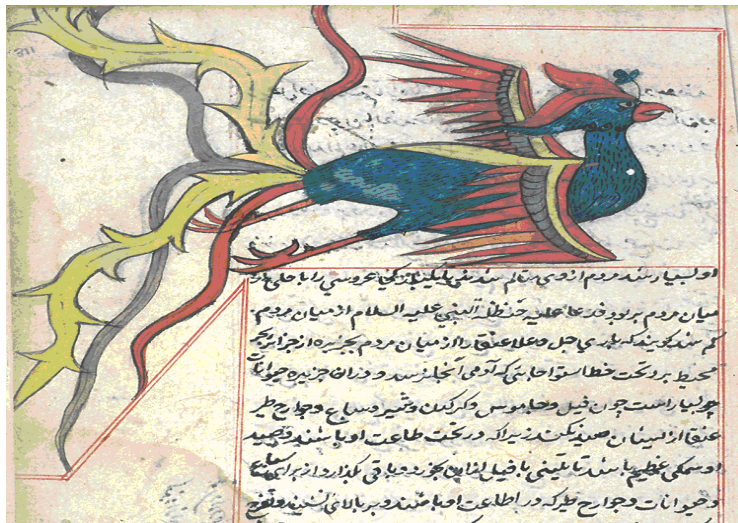 او بسیار شد مردم ازوی متالم شدند عروسی را با حلی
میان مردم بربود فدعا علیه حنظلة النبی علیه السلام از میان مردم
کم شد کویند که باری جل و علا عنقا را از میان مردم بجزیره از جزایر بحر
محیط برد تحت خط استوا جایی که آدمی آنجا نرسد و دران جزیره حیوانات
بسیار است چون فیل و جاموس و کرکدن و و سباع و جوارح طیر
عنقا ازیشان صید نکند زیرا که در تحت طاعت او باشند و صید
او سمکی عظیم باشد یا تنینی یا فیل ازین بخورد و باقی بکذارد از برای سباع
و حیوانات و جوارح طیر که در اطاعت او باشند و بر بالای نشیند و تفرج